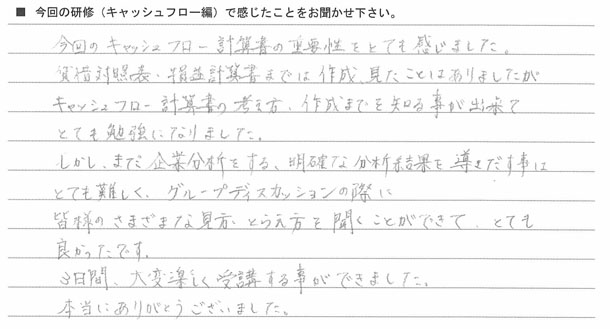 ■ 今回の研修（キャッシュフロー編）で感じたことをお聞かせ下さい。
今回のキャッシュフロー計算書の重要性をとても感じました。
貸借対照表・損益計算書までは作成、見たことはありましたが
キャッシュフロー計算書の考え方、作成までを知る事が出来て
とても勉強になりました。
しかし、まだ企業分析をする、明確な分析結果を導きだす事は
とても難しく、グループディスカッションの際に
皆様のさまざまな見方、とらえ方を聞くことができて、とても
良かったです。
3日間、大変楽しく受講する事ができました。
本当にありがとうございました。